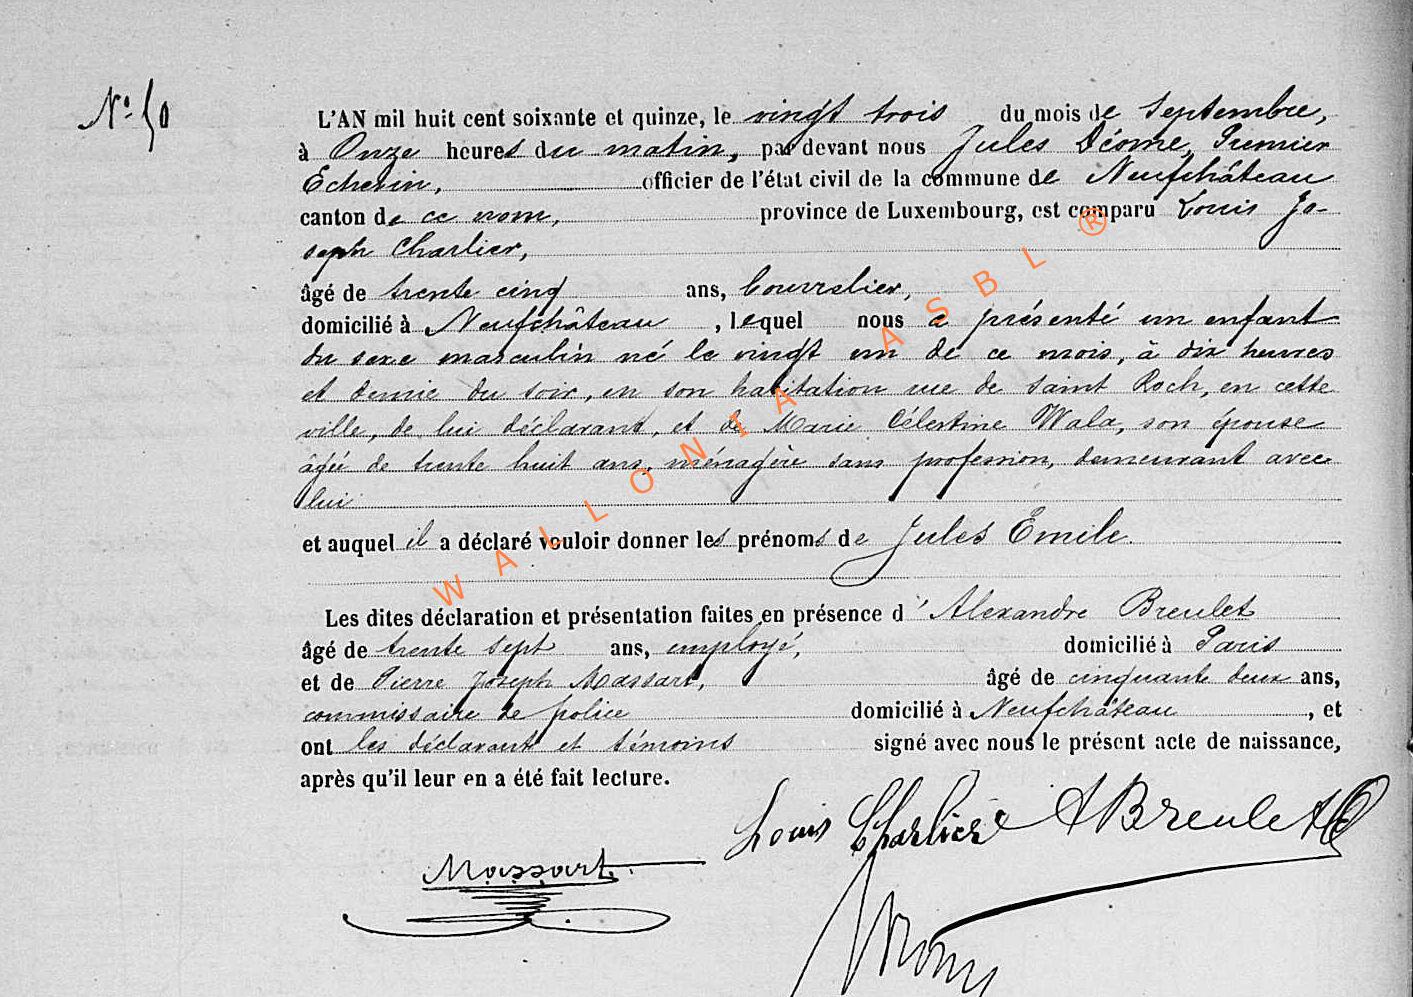 N° 50
L'AN mil huit cent soixante et quinze, le vingt trois du mois de Septembre,
à Onze heures du matin, par devant nous Jules Déome, Premier
Echevin, officier de l'état civil de la commune de Neufchâteau
canton de ce nom, province de Luxembourg, est comparu Louis Jo-
seph Charlier,
âgé de trente cinq ans, Bourrelier,
domicilié à Neufchâteau, lequel nous a présenté un enfant
du sexe masculin né le vingt un de ce mois, à dix heures
et demie du soir, en son habitation rue de Saint Roch, en cette
ville, de lui déclarant, et de Marie Célestine Wala, son épouse
âgée de trente huit ans, ménagère sans profession, demeurant avec
lui
et auquel il a déclaré vouloir donner les prénoms de Jules Emile.
Les dites déclaration et présentation faites en présence d'Alexandre Breulet
âgé de trente sept ans, employé, domicilié à Paris
et de Pierre Joseph Massart, âgé de cinquante deux ans,
commissaire de police domicilié à Neufchâteau, et
ont les déclarant et témoins signé avec nous le présent acte de naissance,
après qu'il leur en a été fait lecture.
Louis Charlier ABreulet
Massart
WALLONIA ASBL ®